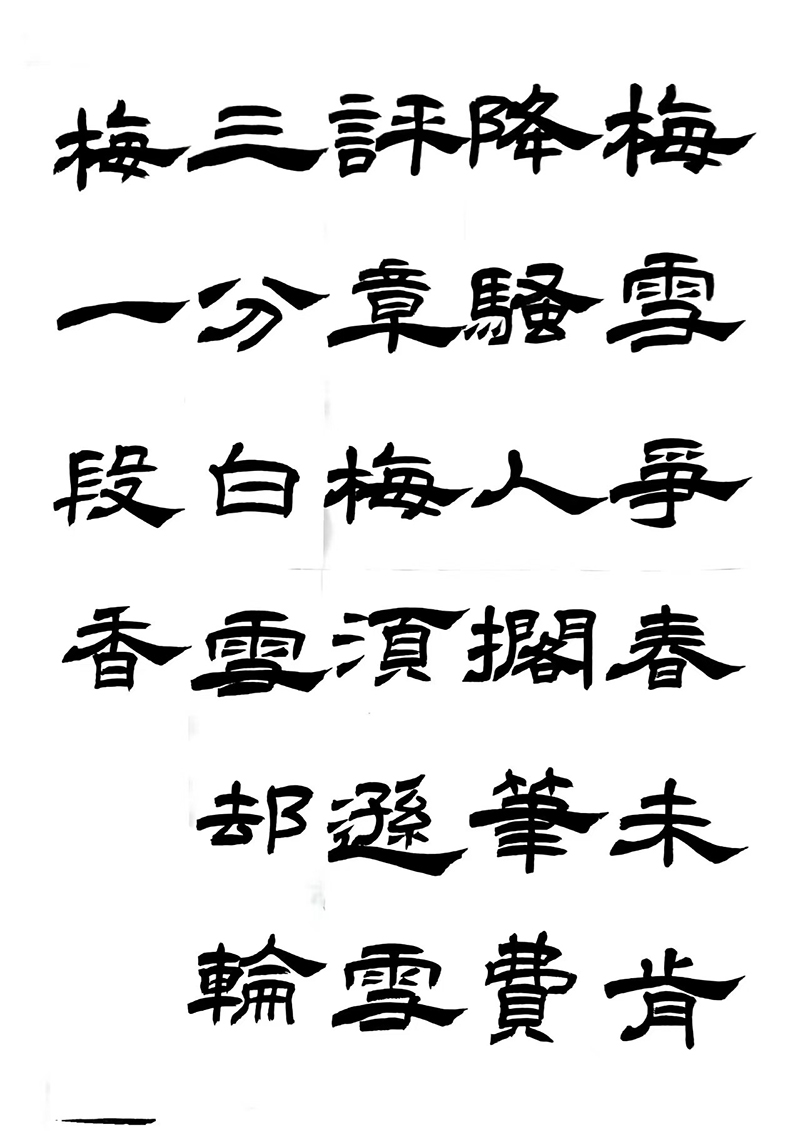 梅雪爭春未肯
降騷人擱筆費
評章梅湏遜雪
三分白雪却輪
梅一段香